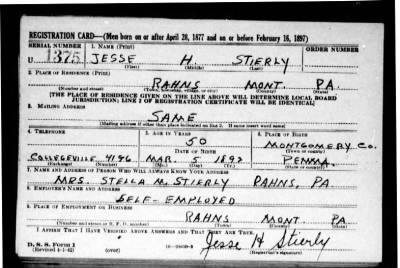 REGISTRATION CARD—(Men born on or after April 28, 1877 and on or before February 16, 1897)
SERIAL NUMBER 1. NAME (Print) ORDER NUMBER
U 1375 JESSE H. STIERLY
(First) (Middle) (Last)
2. PLACE OF RESIDENCE (Print)
RAHNS MONT. PA.
(Number and street) (Town, township, village, or city) (County) (State)
[THE PLACE OF RESIDENCE GIVEN ON THE LINE ABOVE WILL DETERMINE LOCAL BOARD
JURISDICTION; LINE 2 OF REGISTRATION CERTIFICATE WILL BE IDENTICAL]
3. MAILING ADDRESS
SAME
(Mailing address if other than place indicated on line 2. If same insert word same)
4. TELEPHONE 5. AGE IN YEARS 6. PLACE OF BIRTH
50 MONTGOMERY CO.
DATE OF BIRTH (Town or county)
COLLEGEVILLE 4196 MAR. 5 1892 PENNA.
(Exchange) (Number) (Mo.) (Day) (Yr.) (State or country)
7. NAME AND ADDRESS OF PERSON WHO WILL ALWAYS KNOW YOUR ADDRESS
MRS. STELLA M. STIERLY RAHNS, PA.
8. EMPLOYER'S NAME AND ADDRESS
SELF-EMPLOYED
9. PLACE OF EMPLOYMENT OR BUSINESS
RAHNS MONT. PA.
(Number and street or R. F. D. number) (Town) (County) (State)
I AFFIRM THAT I HAVE VERIFIED ABOVE ANSWERS AND THAT THEY ARE TRUE.
Jesse H Stierly
D. S. S. Form 1
(Revised 4-1-42) (over) (Registrant's signature)